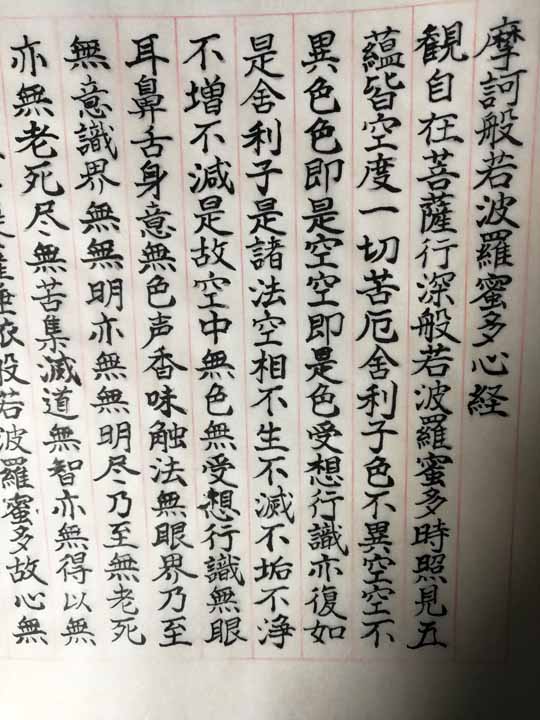 摩訶般若波羅蜜多心経
観自在菩薩行深般若波羅蜜多時照見五
蘊皆空度一切苦厄舎利子色不異空空不
異色色即是空空即是色受想行識亦復如
是舎利子是諸法空相不生不滅不垢不浄
不増不減是故空中無色無受想行識無眼
耳鼻舌身意無色声香味触法無眼界乃至
無意識界無無明亦無無明尽乃至無老死
亦無老死尽無苦集滅道無智亦無得以無
般若波羅蜜多故心無